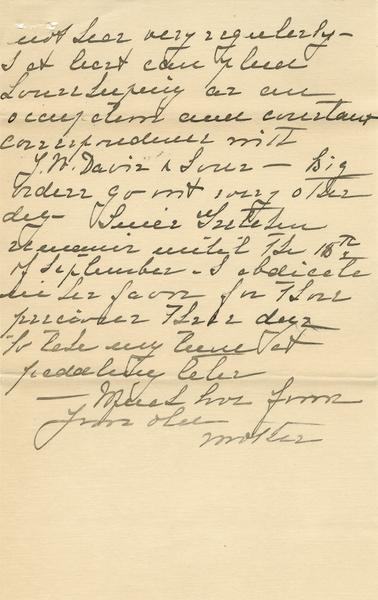 not hear very regularly -
I at least can plead
housekeeping as an
occupation and constant
correspondence with
J. W. Davis & Sons - Big
orders go out every other
day - Since Gretchen
remains until the 18th
of September - I abdicate
in her favor for those
precious three days
to take my turn at
pedaling later
- Much love from
your old
mother